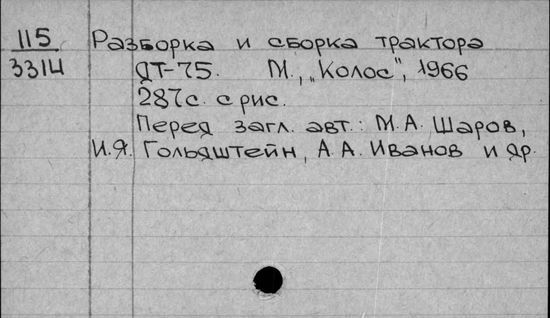 115 Разборка и сборка трактора
3314 ДТ-75. М., "Колос", 1966
287с. с рис.
Перед загл. авт.: М.А. Шаров,
И.Я. Гольдштейн, А.А. Иванов и др.